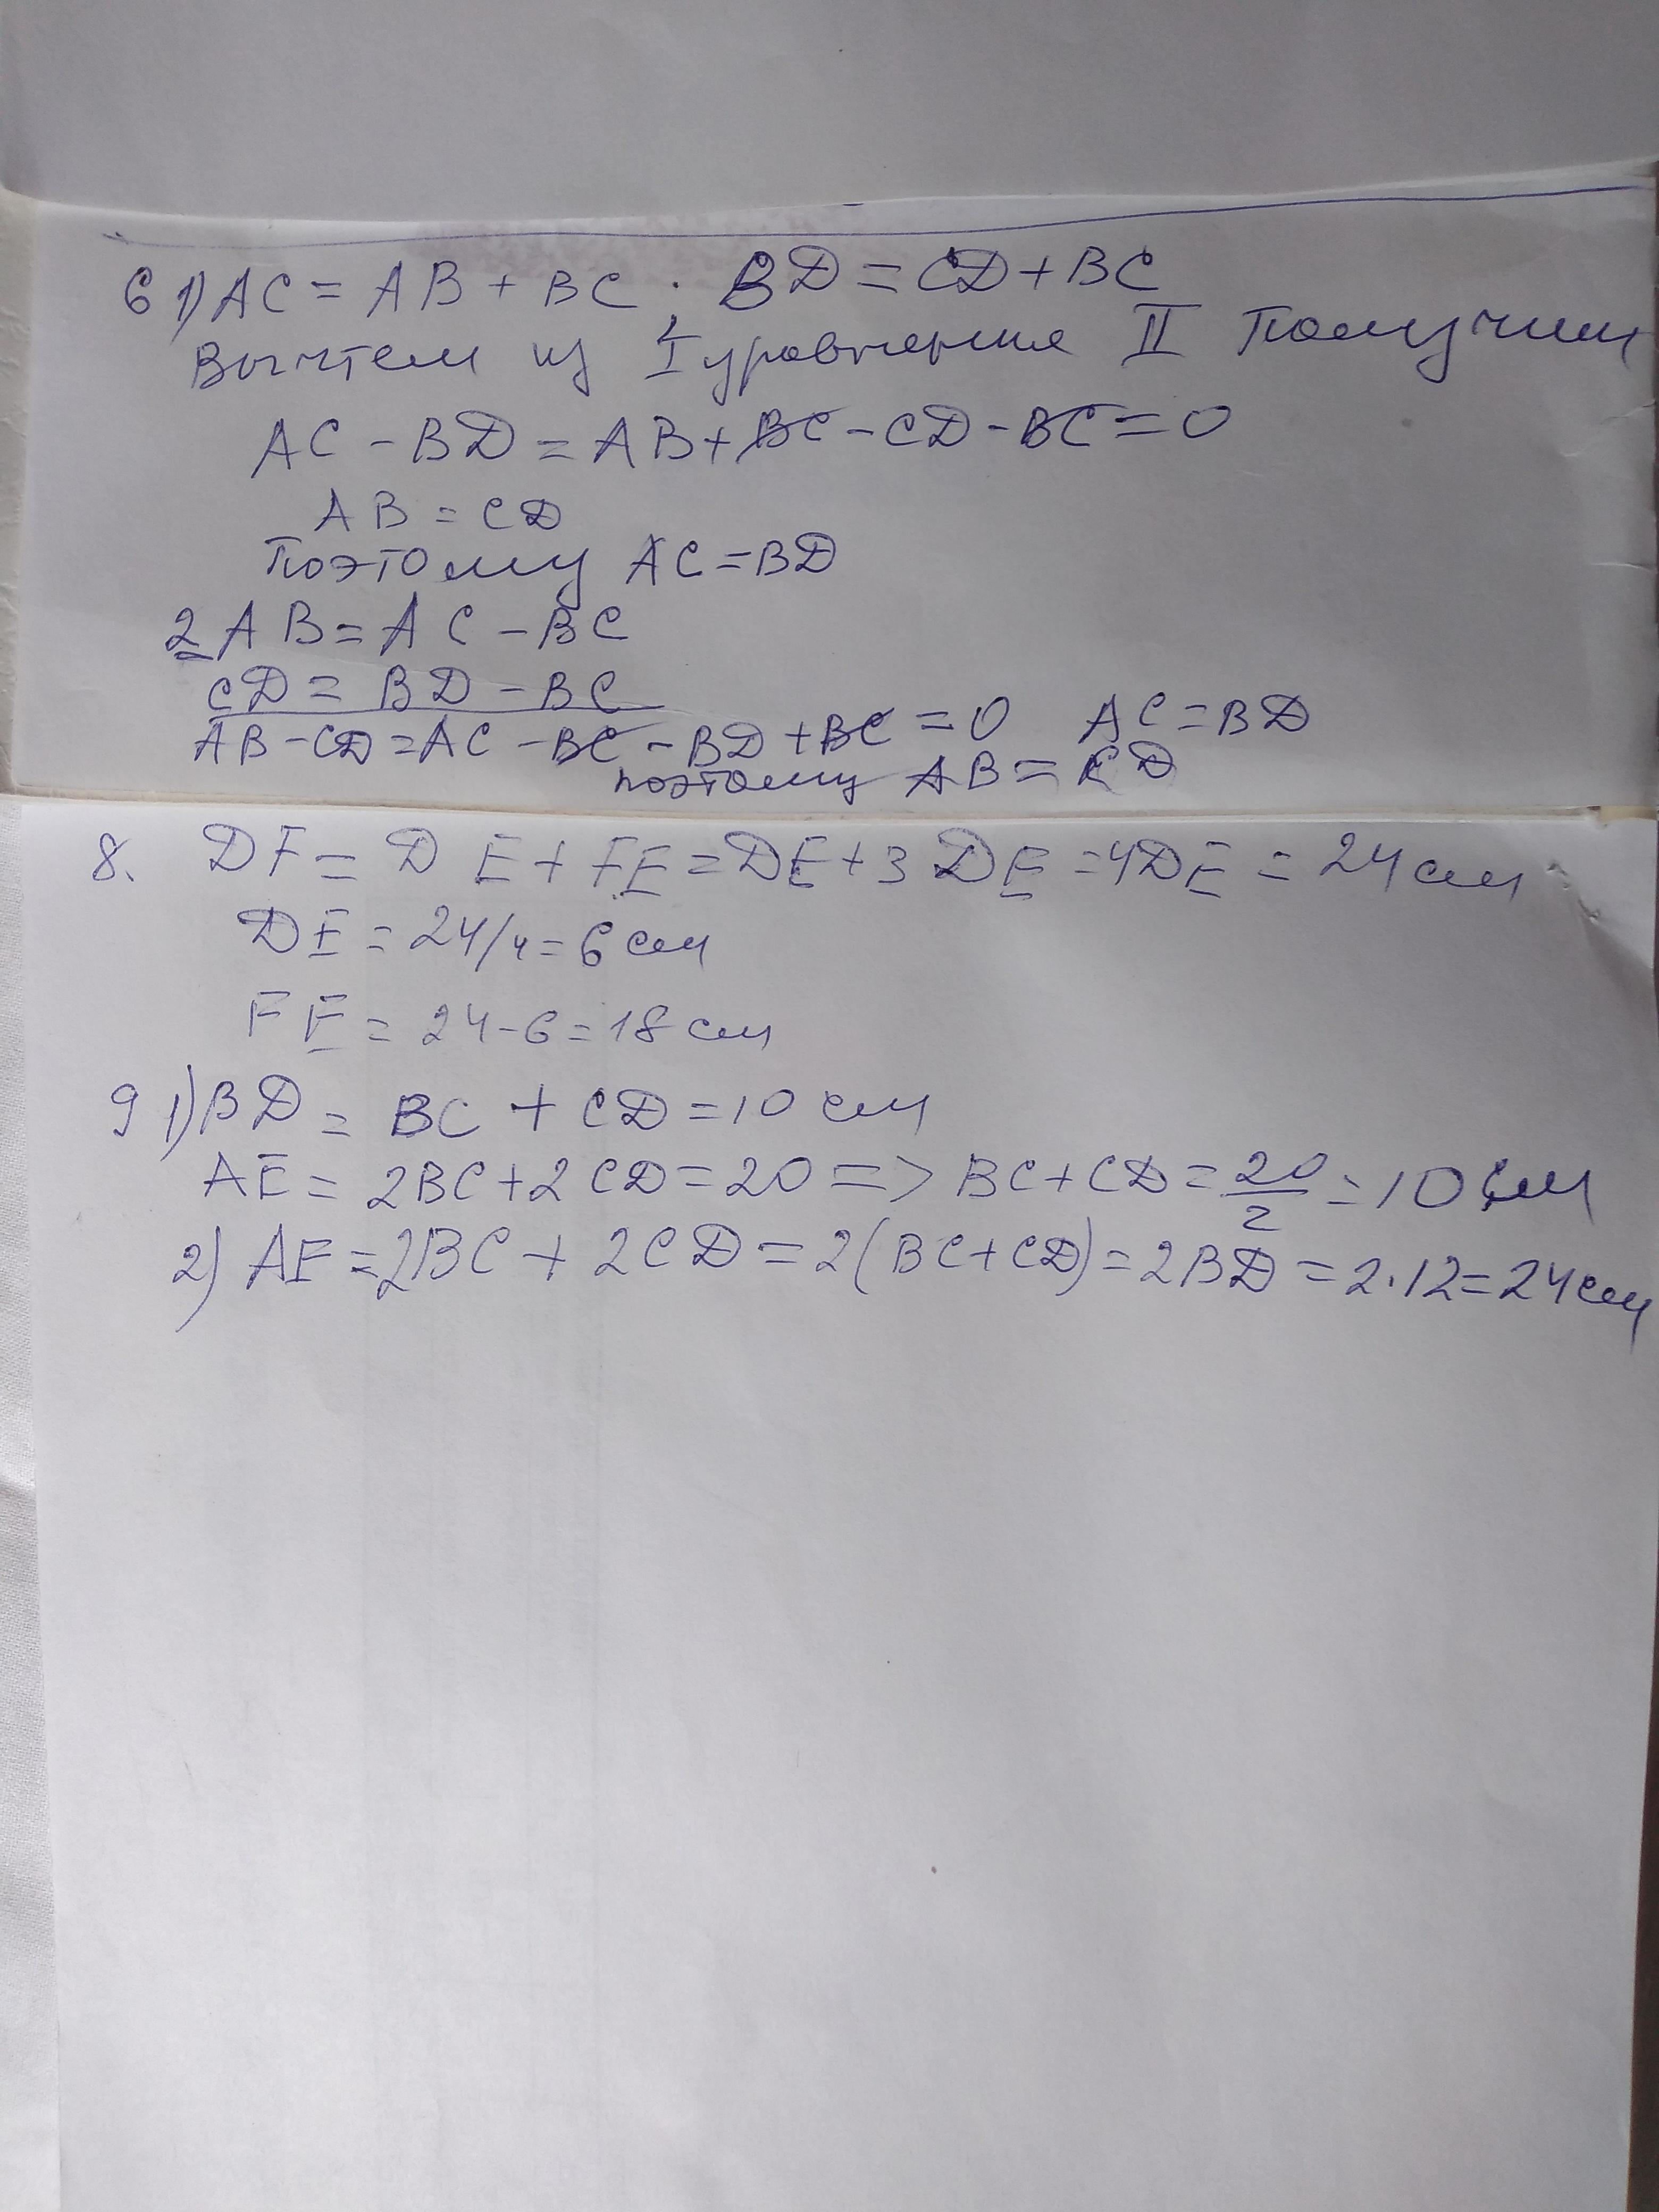 6 1) AC = AB + BC; BD = CD + BC
Вычтем из I уравнения II Получим
AC - BD = AB + BC - CD - BC = 0
AB = CD
Поэтому AC = BD
2 AB = AC - BC
CD = BD - BC
AB - CD = AC - BC - BD + BC = 0 AC = BD
поэтому AB = CD
8. DF = DE + FE = DE + 3DE = 4DE = 24 см
DE = 24/4 = 6 см
FE = 24 - 6 = 18 см
9 1) BD = BC + CD = 10 см
AE = 2BC + 2CD = 20 => BC + CD = 20/2 = 10 см
2) AE = 2BC + 2CD = 2(BC + CD) = 2BD = 2·12 = 24 см